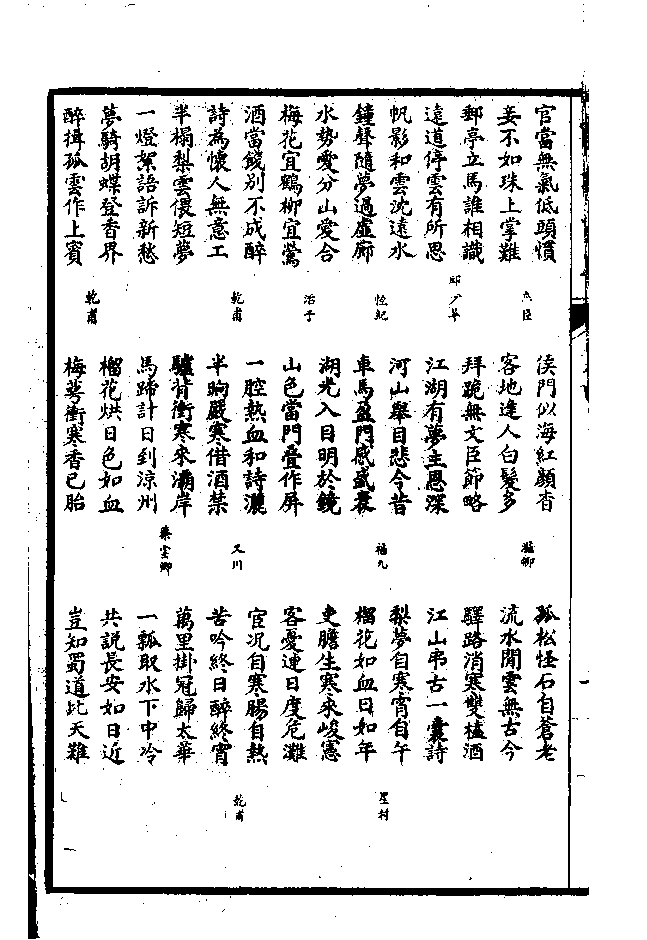 官當無氣低頭慣
妾不如珠上掌難
杰臣
郵亭立馬誰相識
遠道停雲有所思
帆影和雲沈遠水
鐘聲隨夢過虛廊
水勢愛分山愛合
梅花宜鶴柳宜鶯
酒當餞別不成醉
詩為懷人無意工
乾甫
半榻梨雲偎短夢
一燈絮語訴新愁
夢騎胡蝶登香界
醉揖孤雲作上賓
乾甫
侯門似海紅顏杳
客地逢人白髮多
拜跪無文臣節略
江湖有夢主恩深
河山舉目悲今昔
車馬盈門感盛衰
福九
湖光入目明於鏡
山色當門疊作屏
一腔熱血和詩濃
半晌嚴寒借酒禁
又川
驢背衝寒來灞岸
馬蹄計日到涼州
雲卿
榴花烘日色如血
梅萼衝寒香已胎
孤松怪石自蒼老
流水閒雲無古今
驛路消寒雙榼酒
江山弔古一囊詩
梨夢自寒宵自午
榴花如血日如年
星村
吏膽生寒來峻憲
客憂連日度危灘
宦況自寒腸自熱
苦吟終日醉終宵
乾甫
萬里掛冠歸太華
一瓢取水下中冷
共説長安如日近
豈知蜀道比天難